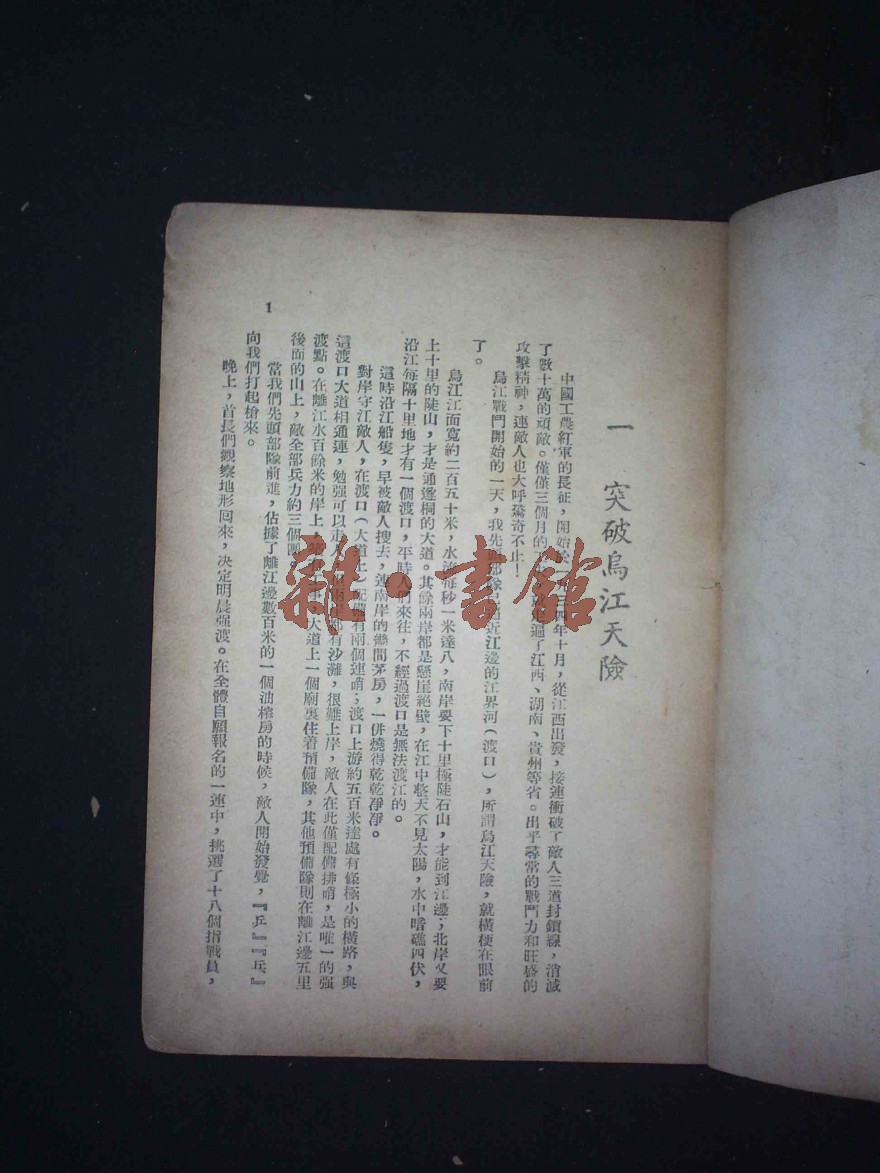 一 突破烏江天險
中國工農紅軍的長征，開始於 三四年十月，從江西出發，接連衝破了敵人三道封鎖線，消滅
了數十萬的頑敵。僅僅三個月的 過了江西、湖南、貴州等省。出乎尋常的戰鬥力和旺盛的
攻擊精神，連敵人也大呼驚奇不止！
烏江戰鬥開始的一天，我先頭部隊已逼近江邊的江界河（渡口），所謂烏江天險，就橫梗在眼前
了。
烏江江面寬約二百五十米，水流每秒一米達八，南岸要下十里極陡石山，才能到江邊；北岸又要
上十里的陡山，才是通遵桐的大道。其餘兩岸都是懸崖絕壁，在江中整天不見太陽，水中暗礁四伏，
沿江每隔十里地才有一個渡口，平時人們來往，不經過渡口是無法渡江的。
這時沿江船隻，早被敵人搜去，連南岸的幾間茅房，一併燒得乾乾凈凈。
對岸守江敵人，在渡口（大道上）配備有兩個連哨；渡口上游約五百米達處有條極小的橫路，與
這渡口大道相通連，勉强可以走人 兩 都有沙灘，很難上岸，敵人在此僅配備排哨，是唯一的强
渡點。在離江水百餘米的岸上 大道上一個廟裏住着預備隊，其他預備隊則在離江邊五里
後面的山上，敵全部兵力約三個團
當我們先頭部隊前進，佔據了離江邊數百米的一個油榨房的時候，敵人開始發覺，『乒』『乓』
向我們打起槍來。
晚上，首長們觀察地形回來，决定明晨强渡。在全體自願報名的一連中，挑選了十八個指戰員，
1
雜·書館